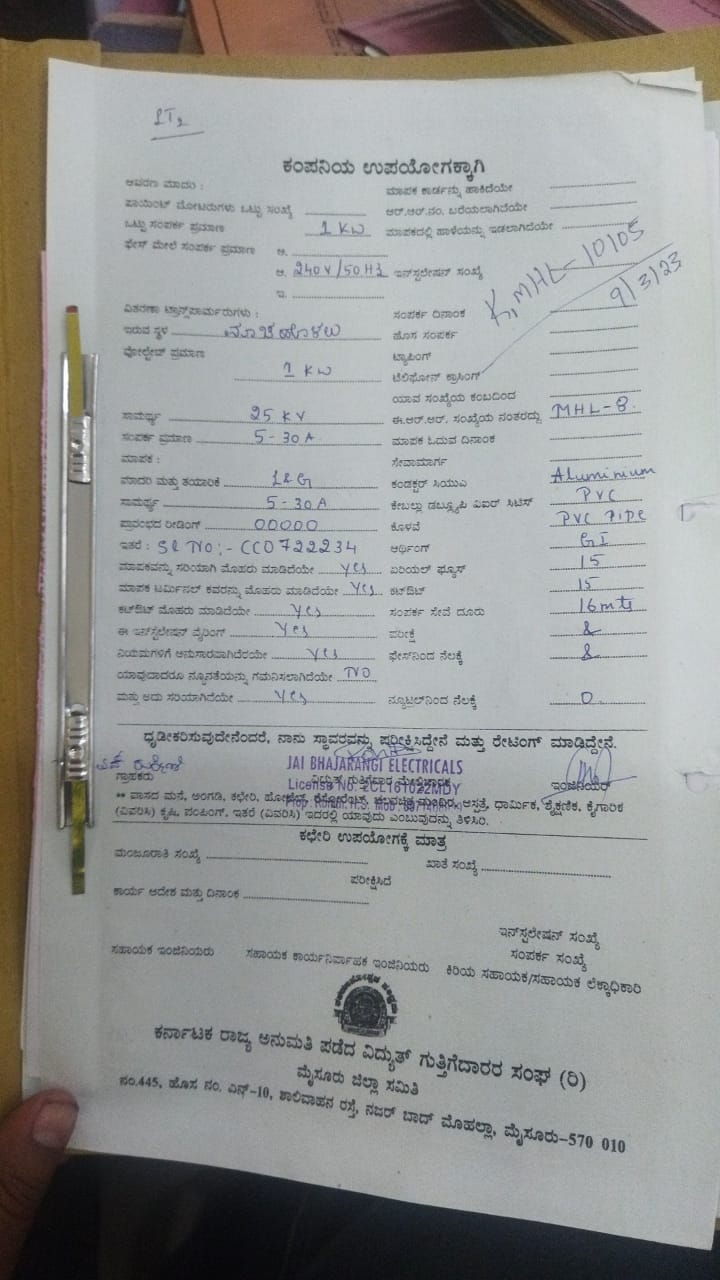 LT2
ಕಂಪನಿಯ ಉಪಯೋಗಕ್ಕಾಗಿ
ಆವರಣ ಮಾದರಿ :
ಮಾಪಕ ಕಾರ್ಡನ್ನು ಹಾಕಿದೆಯೇ
ಪಾಯಿಂಟ್ ಮೋಟರುಗಳು ಒಟ್ಟು ಸಂಖ್ಯೆ
ಆರ್.ಆರ್.ನಂ. ಬರೆಯಲಾಗಿದೆಯೇ
ಒಟ್ಟು ಸಂಪರ್ಕ ಪ್ರಮಾಣ 1 KW
ಮಾಪಕದಲ್ಲಿ ಹಾಳೆಯನ್ನು ಇಡಲಾಗಿದೆಯೇ
ಫೇಸ್ ಮೇಲೆ ಸಂಪರ್ಕ ಪ್ರಮಾಣ ಆ.
ಆ. 240V/50HZ ಇನ್‌ಸ್ಟಲೇಷನ್ ಸಂಖ್ಯೆ
ಇ.
MHL-10105
9/3/23
ವಿತರಣಾ ಟ್ರಾನ್ಸ್‌ಫಾರ್ಮರುಗಳು :
ಸಂಪರ್ಕ ದಿನಾಂಕ
ಇರುವ ಸ್ಥಳ ಮಾಚಹೊಳಲು
ಹೊಸ ಸಂಪರ್ಕ
ವೋಲ್ಟೇಜ್ ಪ್ರಮಾಣ
ಟ್ಯಾಪಿಂಗ್
1 KW
ಟೆಲಿಫೋನ್ ಕ್ರಾಸಿಂಗ್
ಯಾವ ಸಂಖ್ಯೆಯ ಕಂಬದಿಂದ
ಸಾಮರ್ಥ್ಯ 25 KV
ಈ.ಆರ್.ಆರ್. ಸಂಖ್ಯೆಯ ನಂತರದ್ದು MHL-8.
ಸಂಪರ್ಕ ಪ್ರಮಾಣ 5-30A
ಮಾಪಕ ಓದುವ ದಿನಾಂಕ
ಮಾಪಕ :
ಸೇವಾಮಾರ್ಗ
ಮಾದರಿ ಮತ್ತು ತಯಾರಿಕೆ L&G
ಕಂಡಕ್ಟರ್ ಸಿಯುಎ Aluminium
ಸಾಮರ್ಥ್ಯ 5-30A
ಕೇಬಲ್ಲು ಡಬ್ಲ್ಯೂಪಿ ವಿಐರ್ ಸಿಟಿಸ್ PVC
ಪ್ರಾರಂಭದ ರೀಡಿಂಗ್ 00000
ಕೊಳವೆ PVC Pipe
ಇತರೆ : Sl No:- CC0722234
ಆರ್ಥಿಂಗ್ GI
ಮಾಪಕವನ್ನು ಸರಿಯಾಗಿ ಮೊಹರು ಮಾಡಿದೆಯೇ yes
ಏರಿಯಲ್ ಫ್ಯೂಸ್ 15
ಮಾಪಕ ಟರ್ಮಿನಲ್ ಕವರನ್ನು ಮೊಹರು ಮಾಡಿದೆಯೇ yes
ಕಟ್‌ಔಟ್ 15
ಕಟ್‌ಔಟ್ ಮೊಹರು ಮಾಡಿದೆಯೇ yes
ಸಂಪರ್ಕ ಸೇವೆ ದೂರು 16mts
ಈ ಇನ್‌ಸ್ಟಲೇಷನ್ ವೈರಿಂಗ್ yes
ಪರೀಕ್ಷೆ &
ನಿಯಮಗಳಿಗೆ ಅನುಸಾರವಾಗಿದೆರೆಯೇ yes
ಫೇಸ್‌ನಿಂದ ನೆಲಕ್ಕೆ &
ಯಾವುದಾದರೂ ನ್ಯೂನತೆಯನ್ನು ಗಮನಿಸಲಾಗಿದೆಯೇ NO
ಮತ್ತು ಅದು ಸರಿಯಾಗಿದೆಯೇ yes
ನ್ಯೂಟ್ರಲ್‌ನಿಂದ ನೆಲಕ್ಕೆ 0
ಧೃಡೀಕರಿಸುವುದೇನೆಂದರೆ, ನಾನು ಸ್ಥಾವರವನ್ನು ಪರೀಕ್ಷಿಸಿದ್ದೇನೆ ಮತ್ತು ರೇಟಿಂಗ್ ಮಾಡಿದ್ದೇನೆ.
JAI BHAJARANGI ELECTRICALS
ಗ್ರಾಹಕರು
ವಿದ್ಯುತ್ ಗುತ್ತಿಗೆದಾರ ಮೇಲ್ವಿಚಾರಕ
ಇಂಜಿನಿಯರ್
License No. 2CL161022MDY
** ವಾಸದ ಮನೆ, ಅಂಗಡಿ, ಕಛೇರಿ, ಹೋಟೆಲ್, ಮಂದಿರ, ಆಸ್ಪತ್ರೆ, ಧಾರ್ಮಿಕ, ಶೈಕ್ಷಣಿಕ, ಕೈಗಾರಿಕ
(ವಿವರಿಸಿ) ಕೃಷಿ, ಪಂಪಿಂಗ್, ಇತರೆ (ವಿವರಿಸಿ) ಇದರಲ್ಲಿ ಯಾವುದು ಎಂಬುವುದನ್ನು ತಿಳಿಸಿರಿ.
ಕಛೇರಿ ಉಪಯೋಗಕ್ಕೆ ಮಾತ್ರ
ಮಂಜೂರಾತಿ ಸಂಖ್ಯೆ
ಖಾತೆ ಸಂಖ್ಯೆ
ಪರೀಕ್ಷಿಸಿದೆ
ಕಾರ್ಯ ಆದೇಶ ಮತ್ತು ದಿನಾಂಕ
ಇನ್‌ಸ್ಟಲೇಷನ್ ಸಂಖ್ಯೆ
ಸಂಪರ್ಕ ಸಂಖ್ಯೆ
ಸಹಾಯಕ ಇಂಜಿನಿಯರು
ಸಹಾಯಕ ಕಾರ್ಯನಿರ್ವಾಹಕ ಇಂಜಿನಿಯರು
ಕಿರಿಯ ಸಹಾಯಕ/ಸಹಾಯಕ ಲೆಕ್ಕಾಧಿಕಾರಿ
ಕರ್ನಾಟಕ ರಾಜ್ಯ ಅನುಮತಿ ಪಡೆದ ವಿದ್ಯುತ್ ಗುತ್ತಿಗೆದಾರರ ಸಂಘ (ರಿ)
ಮೈಸೂರು ಜಿಲ್ಲಾ ಸಮಿತಿ
ನಂ.445, ಹೊಸ ನಂ. ಎನ್-10, ಶಾಲಿವಾಹನ ರಸ್ತೆ, ನಜರ್ ಬಾದ್ ಮೊಹಲ್ಲಾ, ಮೈಸೂರು-570 010